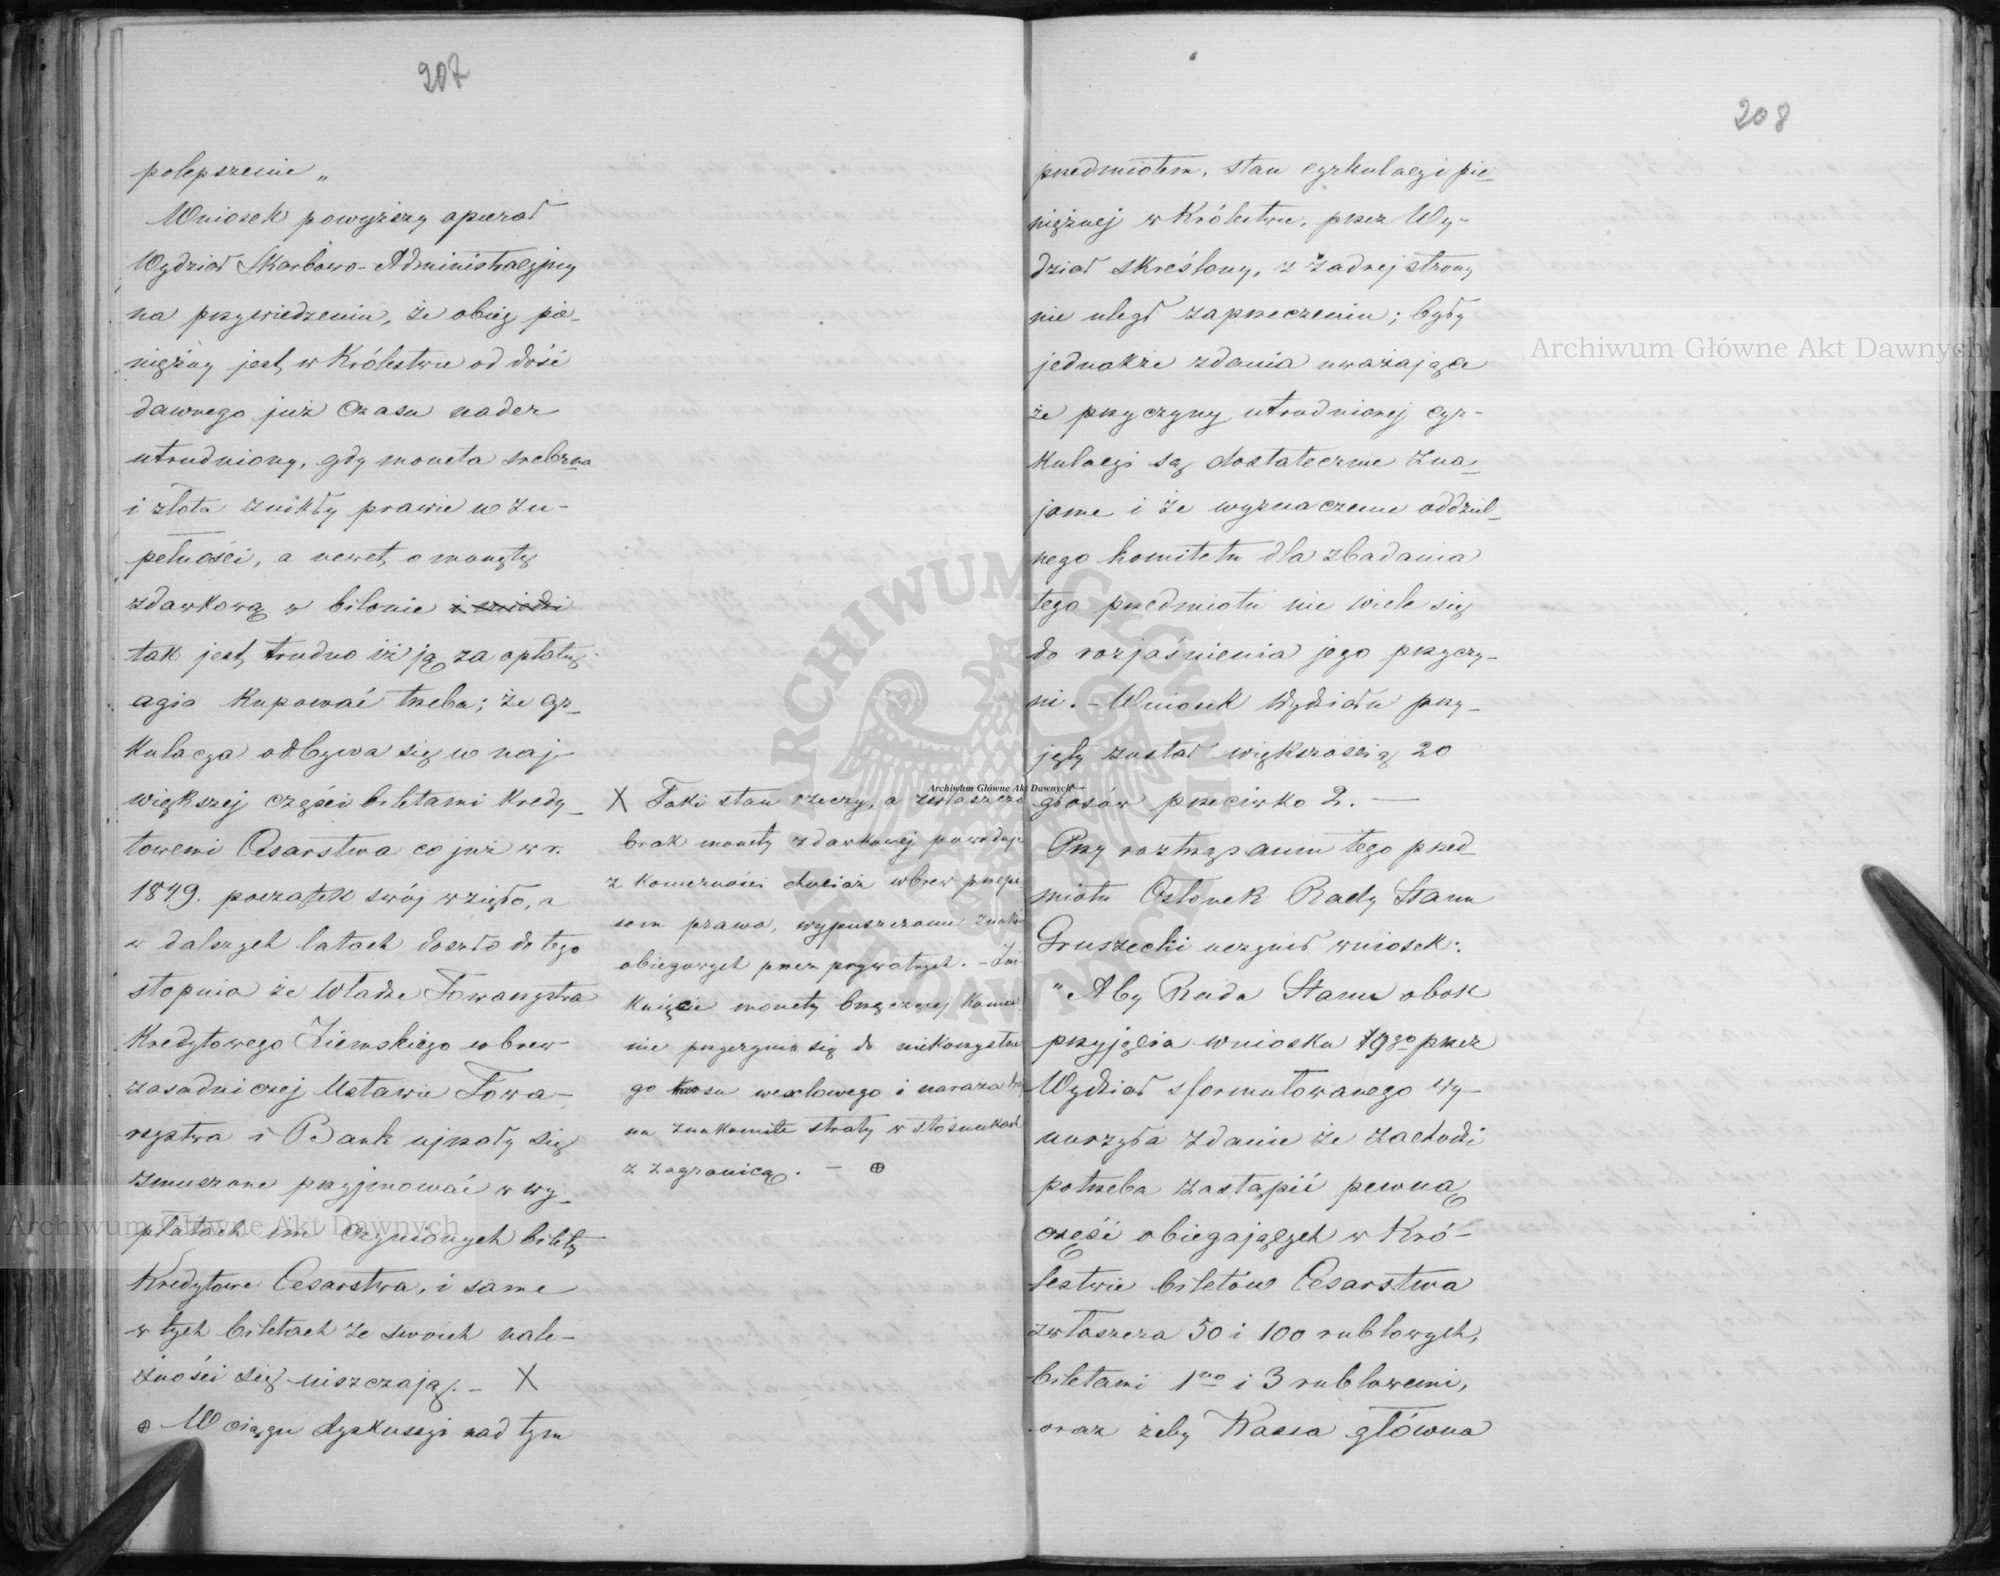 207
polepszenie „
Wniosek powyższy opierał
Wydział Skarbowo-Administracyjny
na przywiedzeniu, że obieg pie-
niężny jest w Królestwie od dość
dawnego już czasu nader
utrudniony, gdy moneta srebrna
i złota znikły prawie w zu-
pełności, a nawet o monetę
zdawkową w bilonie i miedzi
tak jest trudno iż ją za opłatą
agio kupować trzeba; że cyr-
kulacya odbywa się w naj-
większej części biletami kredy-
towemi Cesarstwa co już w r.
1849. początek swój wzięło, a
w dalszych latach doszło do tego
stopnia że Władze Towarzystwa
Kredytowego Ziemskiego wbrew
zasadniczej Ustawie Towa-
rzystwa i Bank ujrzały się
zmuszone przyjmować w wy-
płatach im czynionych bilety
Kredytowe Cesarstwa, i same
w tych biletach ze swoich nale-
żności się uiszczają. – X
⊕ W ciągu dyskussyi nad tym
X Taki stan rzeczy, a zwłaszcza
brak monety zdawkowej powoduje
z konieczności chociaż wbrew przepi
som prawa, wypuszczanie znaków
obiegowych przez prywatnych. – Zni
knięcie monety brzęczącej
nie przyczynia się do niekorzystne
go kursu wexlowego i naraża kraj
na znakomite straty w stosunkach
z zagranicą. – ⊕
208
przedmiotem, stan cyrkulacyi pie-
niężnej w Królestwie, przez Wy-
dział skreślony, z żadnej strony
nie uległ zaprzeczeniu; były
jednakże zdania uważające
że przyczyny utrudnionej cyr-
kulacyi są dostatecznie zna-
jome i że wyznaczenie oddziel-
nego komitetu dla zbadania
tego przedmiotu nie wiele się
do rozjaśnienia jego przyczy-
ni. – Wniosek Wydziału przy-
jęty został większością 20
głosów przeciwko 2. —
Przy roztrząsaniu tego przed-
miotu Członek Rady Stanu
Gruszecki uczynił wniosek:
"Aby Rada Stanu obok
przyjęcia wniosku 19go przez
Wydział sformułowanego wy-
nurzyła zdanie że zachodzi
potrzeba zastąpić pewną
część obiegających w Kró-
lestwie biletów Cesarstwa
zwłaszcza 50 i 100 rublowych,
biletami 1no i 3 rublowemi,
oraz żeby Kassa główna
Archiwum Główne Akt Dawnych
Archiwum Główne Akt Dawnych
Archiwum Główne Akt Dawnych
ARCHIWUM GŁÓWNE AKT DAWNYCH